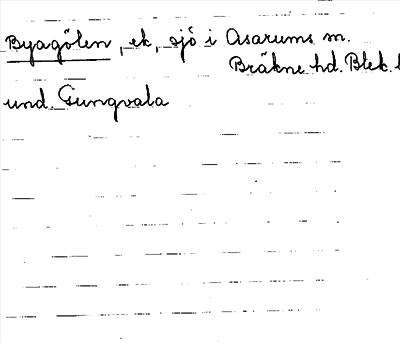 Byagölen, ek, sjö i Asarums sn.
Bräkne hd. Blek. l
und. Gungvala